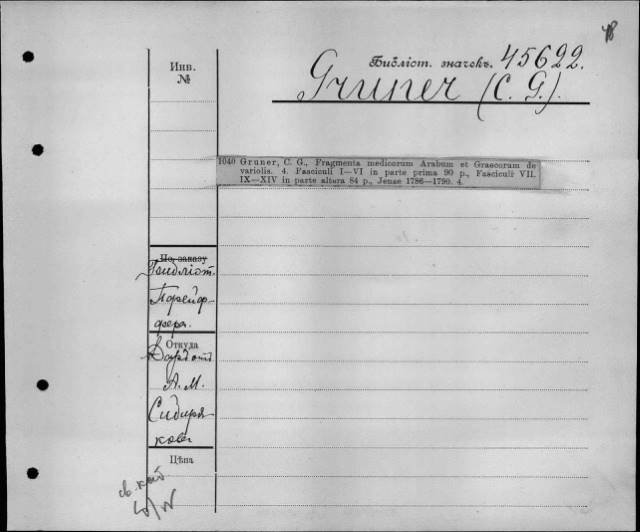 Библіот. значекъ. 45622.
Gruner (C. G.)
Инв.
№
1040 Gruner, C. G., Fragmenta medicorum Arabum et Graecorum de
variolis. 4. Fasciculi I—VI in parte prima 90 p., Fasciculi VII.
IX—XIV in parte altera 84 p., Jenae 1786—1790. 4.
По заказу
Откуда
А. М.
Сибиря-
кова
Цѣна